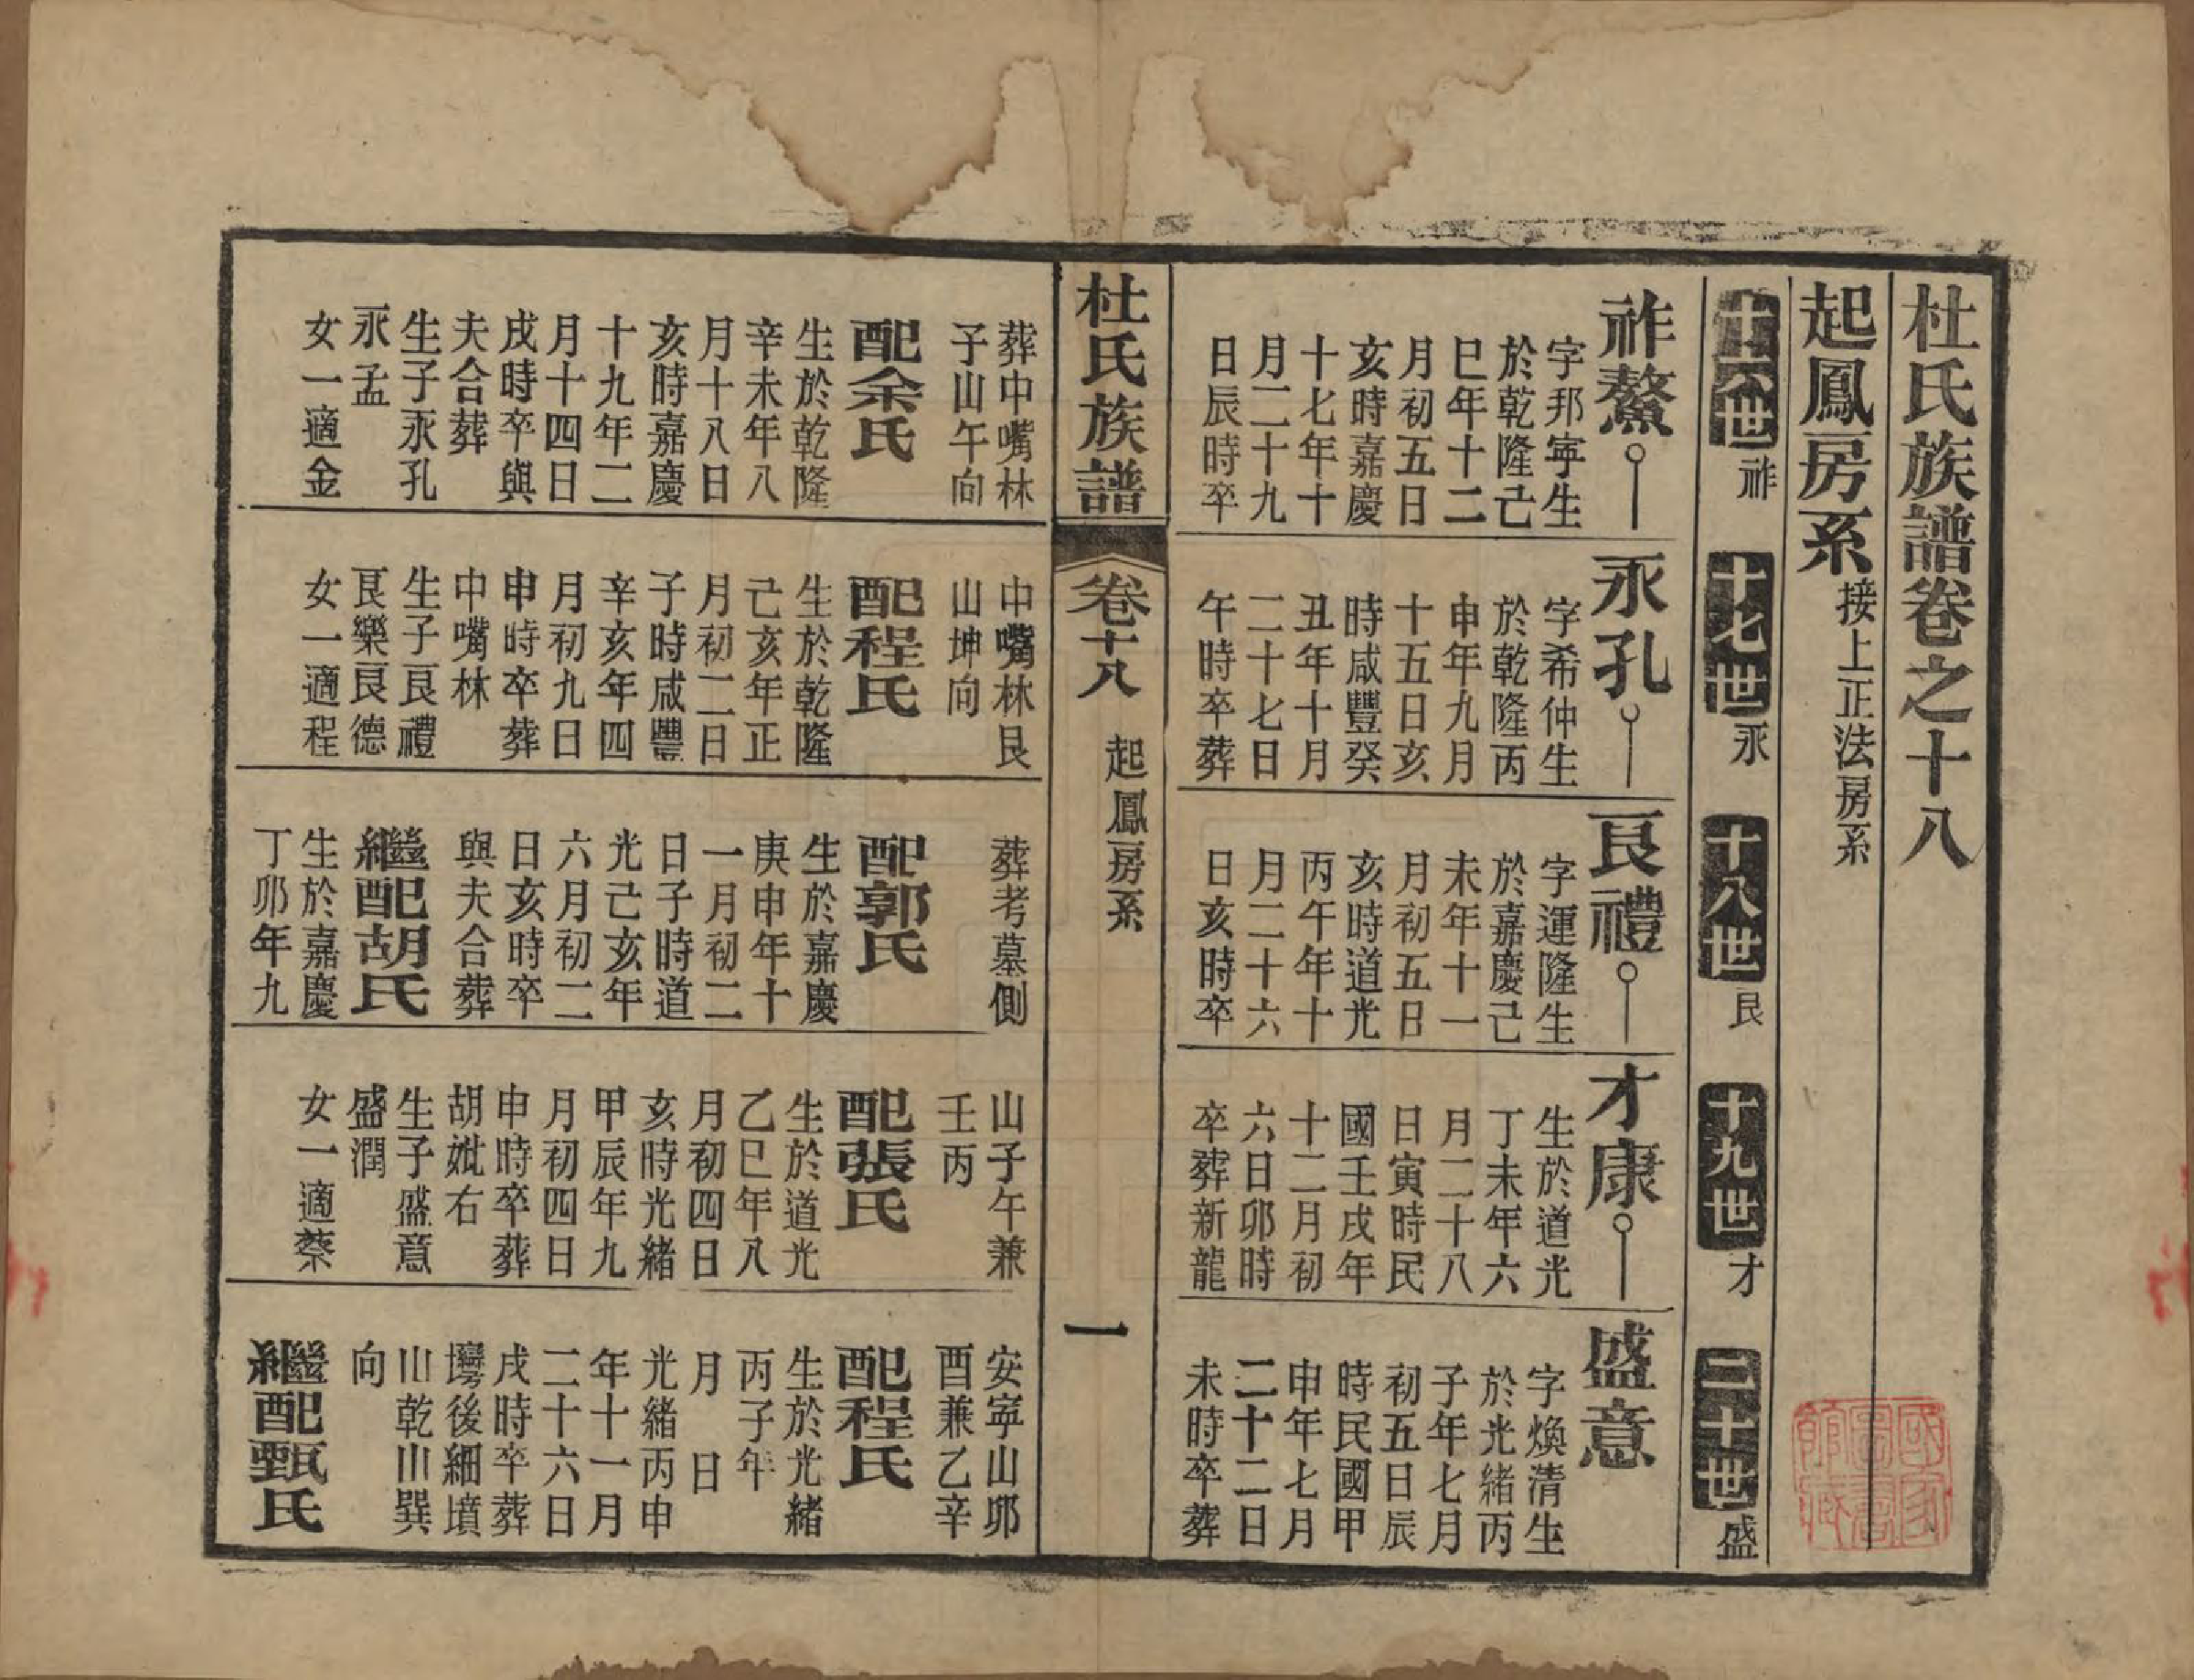 杜氏族譜卷之十八
起鳳房系接上正法房系
十六世祚
十七世永
十八世良
十九世才
二十世盛
祚鰲
字邦寧生
於乾隆己
巳年十二
月初五日
亥時嘉慶
十七年十
月二十九
日辰時卒
葬中嘴林
子山午向
配余氏
生於乾隆
辛未年八
月十八日
亥時嘉慶
十九年二
月十四日
戌時卒與
夫合葬
生子永孔
永孟
女一適金
永孔
字希仲生
於乾隆丙
申年九月
十五日亥
時咸豐癸
丑年十月
二十七日
午時卒葬
中嘴林艮
山坤向
配程氏
生於乾隆
己亥年正
月初二日
子時咸豐
辛亥年四
月初九日
申時卒葬
中嘴林
生子良禮
良樂良德
女一適程
良禮
字運隆生
於嘉慶己
未年十一
月初五日
亥時道光
丙午年十
月二十六
日亥時卒
葬考墓側
配郭氏
生於嘉慶
庚申年十
一月初二
日子時道
光己亥年
六月初二
日亥時卒
與夫合葬
繼配胡氏
生於嘉慶
丁卯年九
才康
生於道光
丁未年六
月二十八
日寅時民
國壬戌年
十二月初
六日卯時
卒葬新龍
山子午兼
壬丙
配張氏
生於道光
乙巳年八
月初四日
亥時光緒
甲辰年九
月初四日
申時卒葬
胡妣右
生子盛意
盛潤
女一適蔡
盛意
字煥清生
於光緒丙
子年七月
初五日辰
時民國甲
申年七月
二十二日
未時卒葬
安寧山卯
酉兼乙辛
配程氏
生於光緒
丙子年
月 日
光緒丙申
年十一月
二十六日
戌時卒葬
塆後細墳
山乾山巽
向
繼配甄氏
杜氏族譜
卷十八 起鳳房系
一
國家圖書館藏